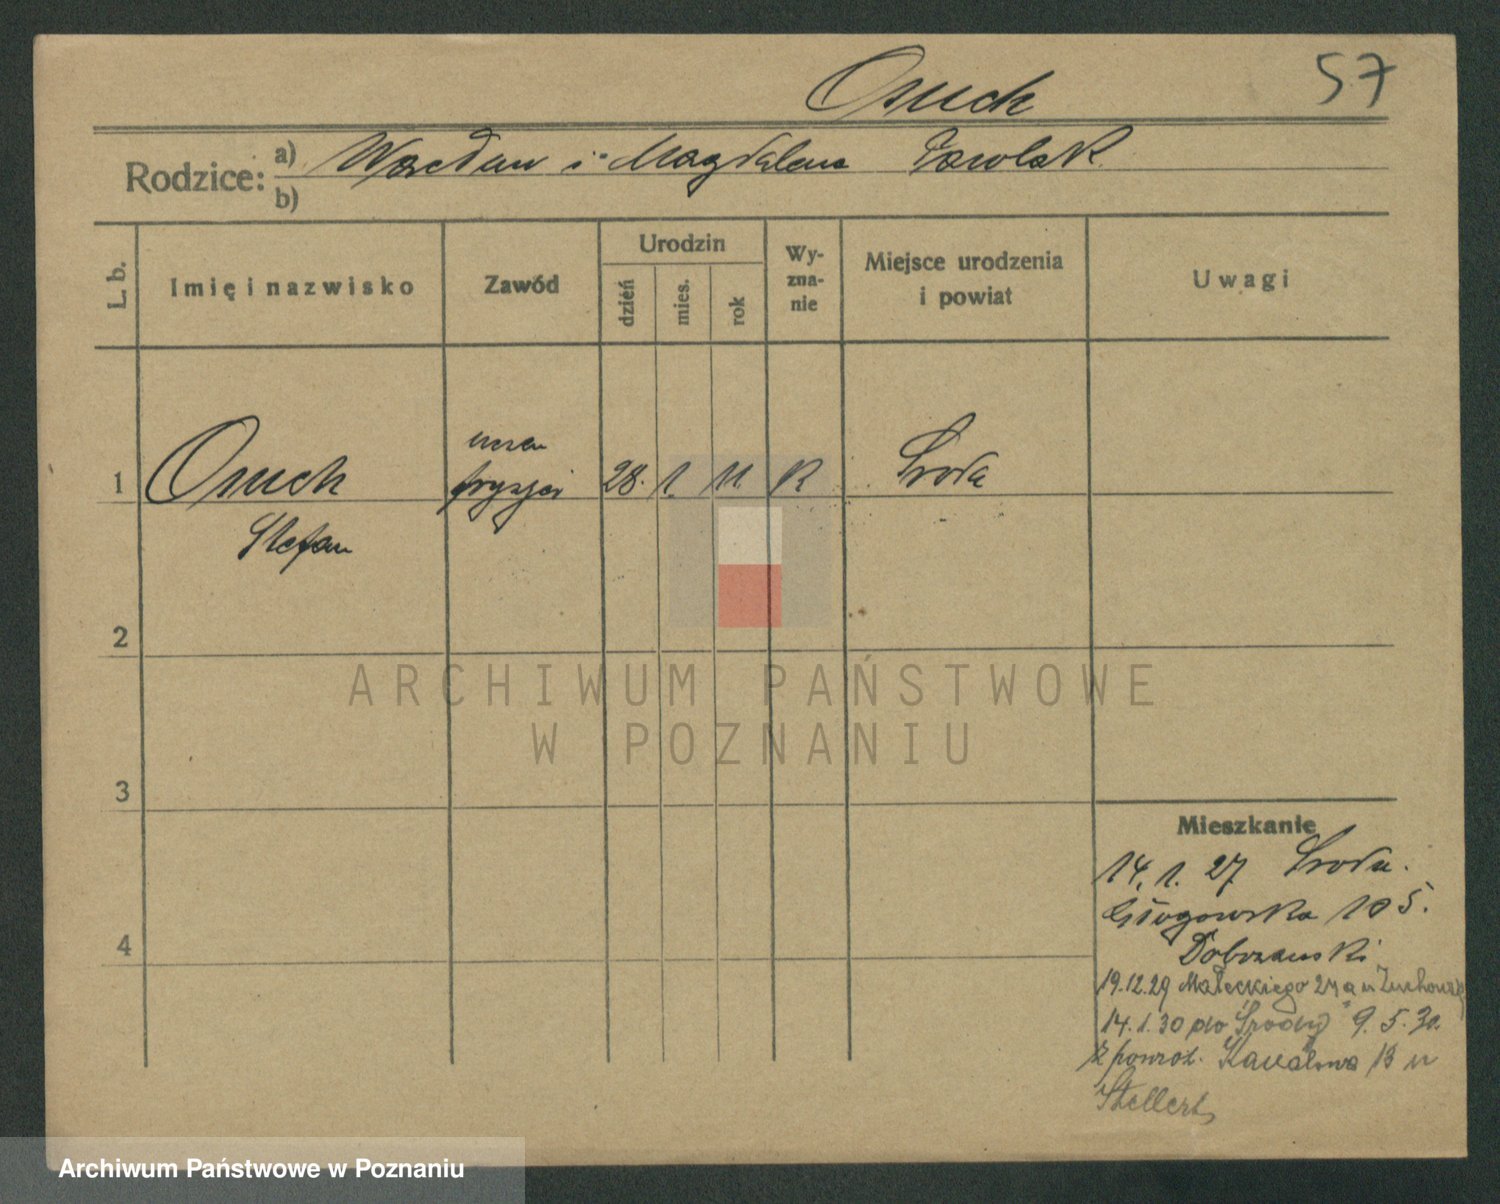 Osuch
57
Rodzice: a) Wacław i Magdalena Pawolak
b)
L. b.
Imię i nazwisko
Zawód
Urodzin
dzień
mies.
rok
Wy-
zna-
nie
Miejsce urodzenia
i powiat
Uwagi
uczeń
1 Osuch fryzjer 28. 1. 11. K Środa
Stefan
2
ARCHIWUM PAŃSTWOWE
W POZNANIU
3
Mieszkanie
14. 1. 27 Środa.
Głogowska 105.
4
Dobrzański
19.12.29 Małeckiego 24a u Żuchowskiej
14.1.30 do Środy 9.5.30.
z powrot. Kanałowa 13 u
Stellert
Archiwum Państwowe w Poznaniu